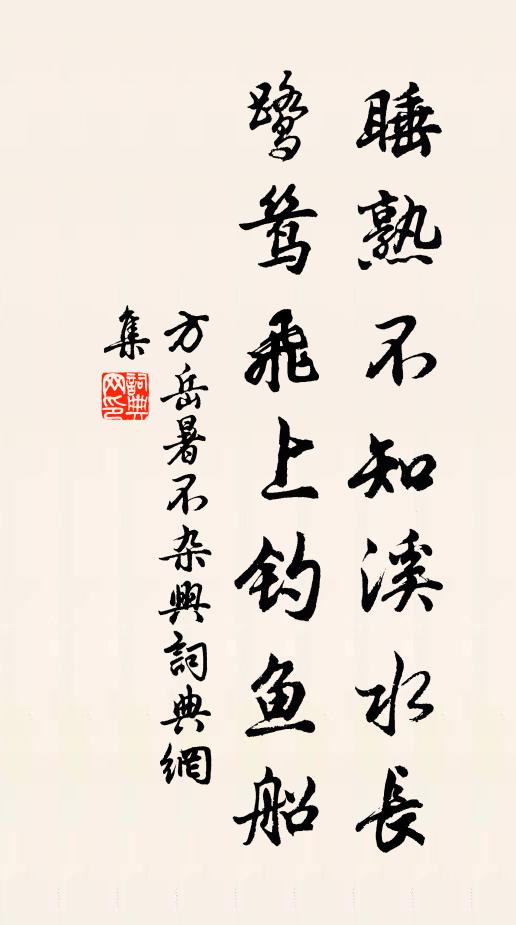 睡熟不知溪水長
鹭鸶飛上钓鱼船
方岳暑不杂興詞典網
集
詞典网印